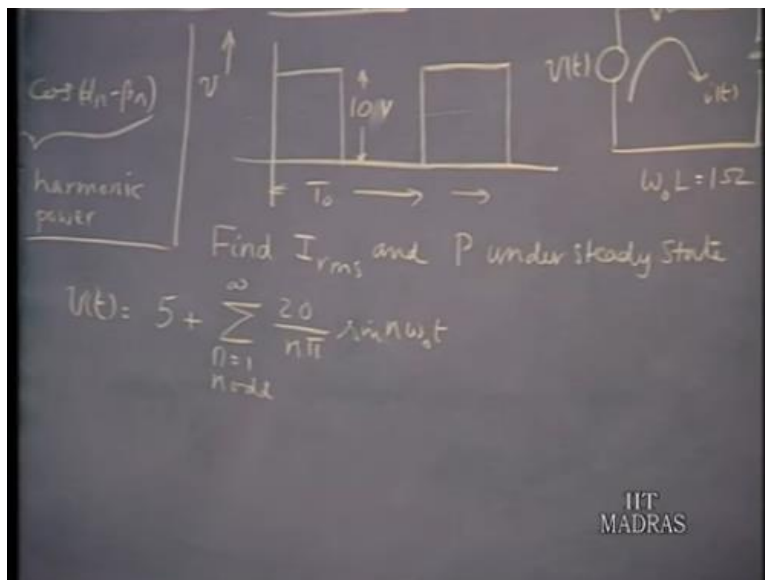 Cos(αn-βn)
harmonic
power
v
10 V
T₀
v(t)
i(t)
ω₀L = 1Ω
Find Irms and P under steady state
v(t) = 5 + ∞∑n=1 n odd 20/nπ sin nω₀t
IIT
MADRAS